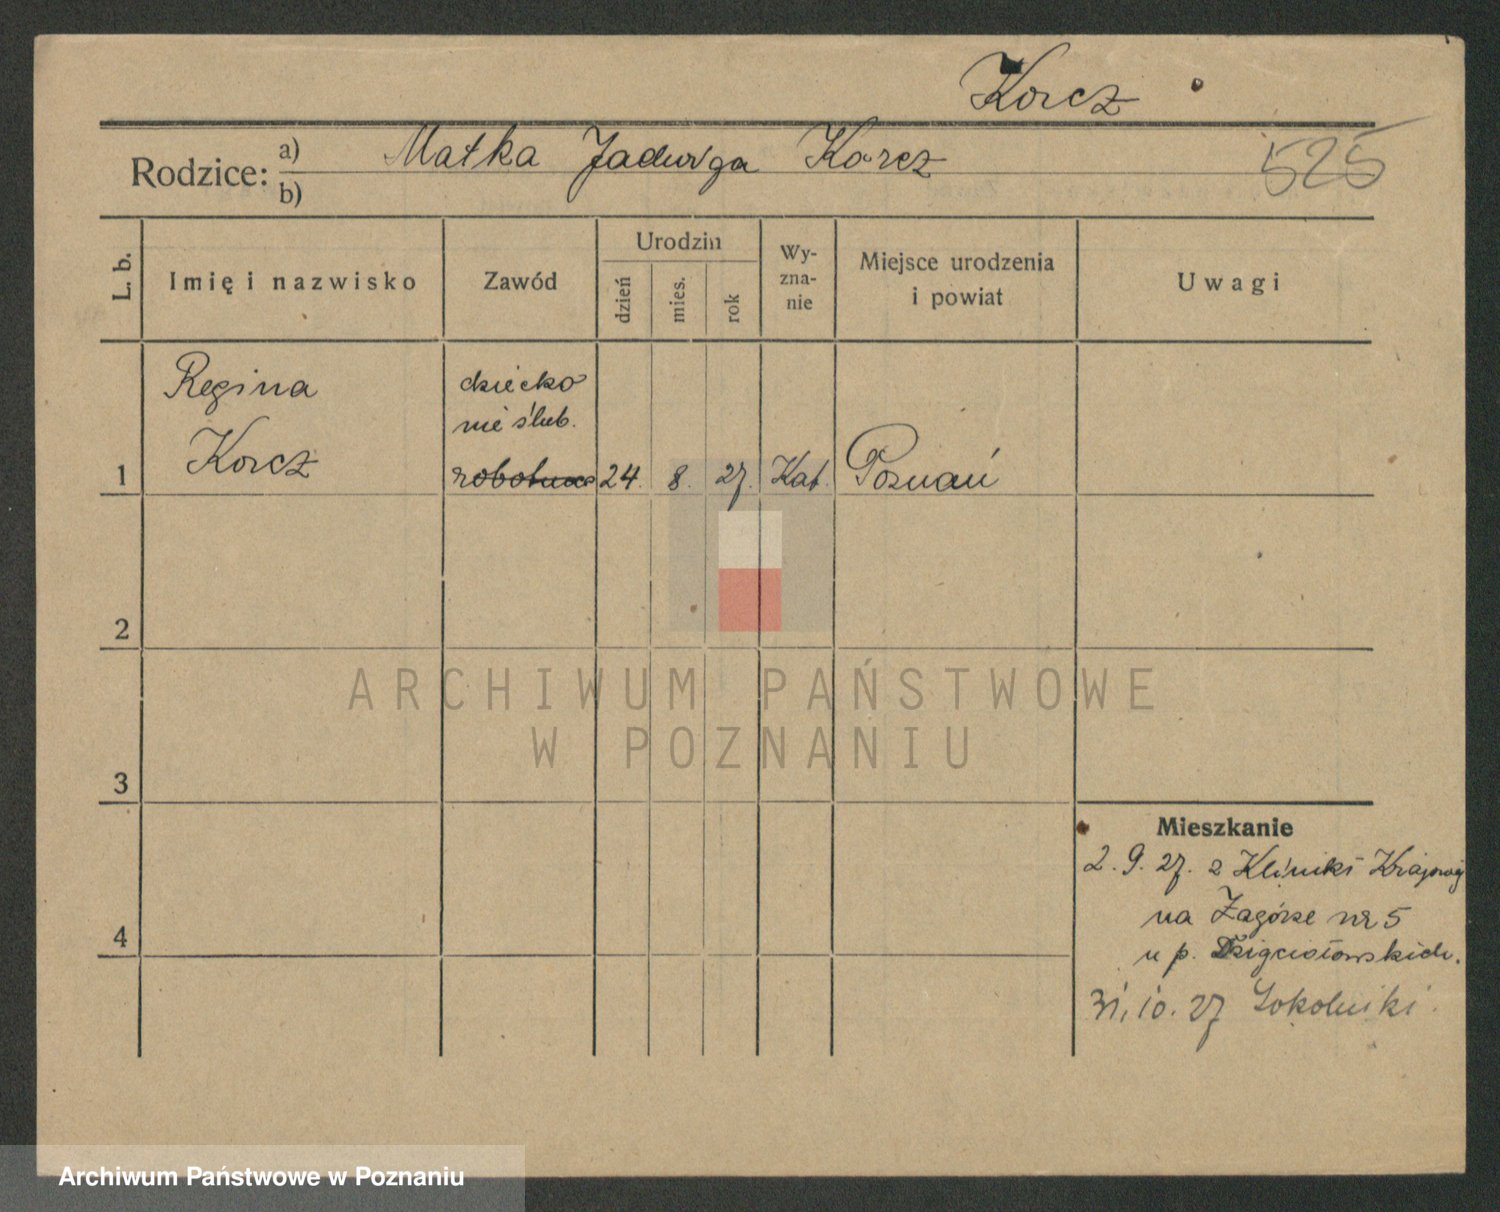 Korcz
525
Rodzice: a) Matka Jadwiga Korcz
b)
L. b.
Imię i nazwisko
Zawód
Urodzin
dzień
mies.
rok
Wy-
zna-
nie
Miejsce urodzenia
i powiat
Uwagi
Regina
Korcz
dziecko
nieślub.
1
24. 8. 27. Kat. Poznań
2
ARCHIWUM PAŃSTWOWE
W POZNANIU
3
Mieszkanie
2. 9. 27. z Kliniki Krajowej
na Zagórze nr 5
u p.
4
31.10.27 Sokolniki.
Archiwum Państwowe w Poznaniu